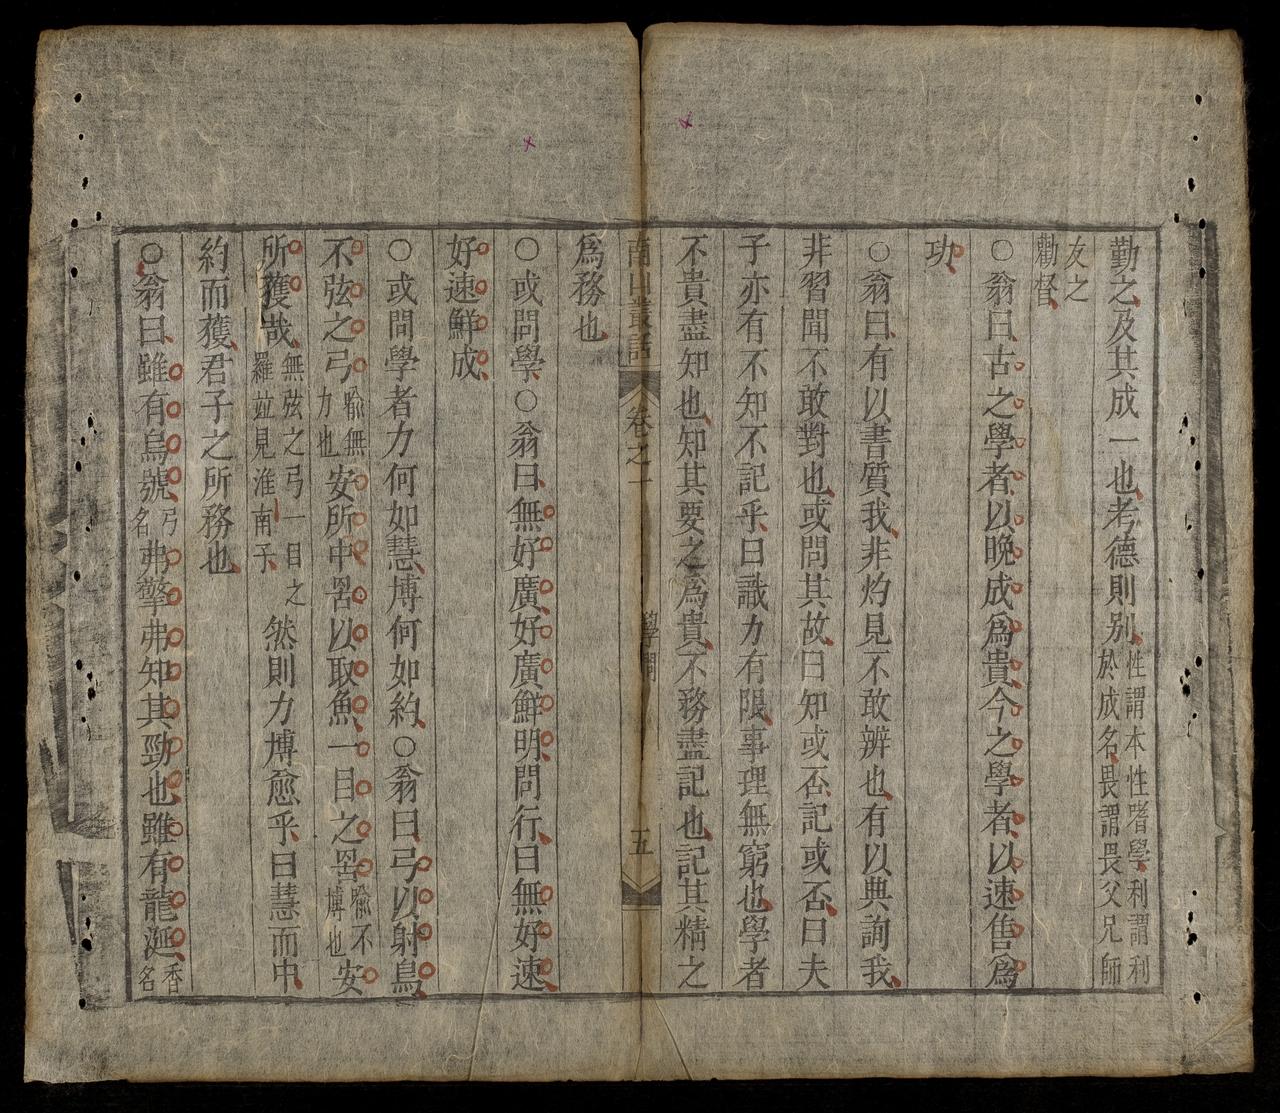 勤之及其成一也考德則別性謂本性嗜學利謂利於成名畏謂畏父兄師
友之勸督
○翁曰古之學者以晚成爲貴今之學者以速售爲
功
○翁曰有以書質我非灼見不敢辨也有以典詢我
非習聞不敢對也或問其故曰知或否記或否曰夫
子亦有不知不記乎曰識力有限事理無窮也學者
不貴盡知也知其要之爲貴不務盡記也記其精之
南山叢話
卷之一
學問
五
爲務也
○或問學○翁曰無好廣好廣鮮明問行曰無好速
好速鮮成
○或問學者力何如慧博何如約○翁曰弓以射鳥
不弦之弓喩無力也安所中罟以取魚一目之罟喩不博也安
所獲哉無弦之弓一目之羅竝見淮南子然則力博愈乎曰慧而中
約而獲君子之所務也
○翁曰雖有烏號弓名弗擎弗知其勁也雖有龍涎香名